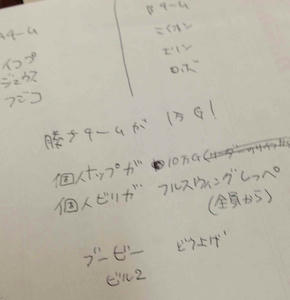 Aチーム
イコプ
ジェウス
フジコ
Bチーム
ミイオン
エリン
ロボ
勝チチームが 1万G!
個人トップが 10万G
個人ビリが フルスウィングしっぺ
(全員から)
ブービー ビラ上げ
ビル2